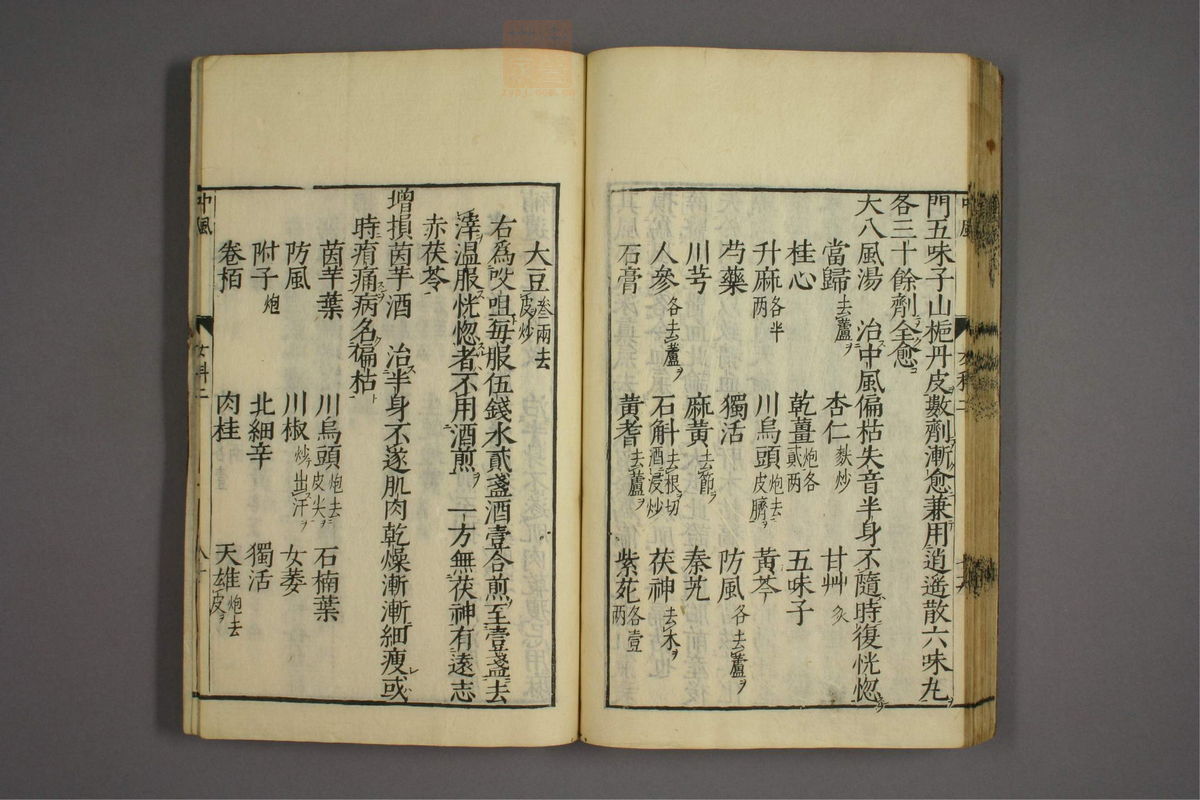 門五味子山梔丹皮數劑漸愈兼用逍遙散六味丸
各三十餘劑全愈
大八風湯 治中風偏枯失音半身不隨時復恍惚
當歸去蘆 杏仁麩炒 甘艸炙
桂心 乾薑炮各貳两 五味子
升麻各半两 川烏頭炮去皮臍 黃芩
芍藥 獨活 防風各去蘆
川芎 麻黃去節 秦艽
人參各去蘆 石斛去根切酒浸炒 茯神去木
石膏 黃耆去蘆 紫菀各壹两
大豆叁兩去皮炒
右爲㕮咀每服伍錢水貳盞酒壹合煎至壹盞去
滓温服恍惚者不用酒煎 一方無茯神有遠志
赤茯苓
增損茵芋酒 治半身不遂肌肉乾燥漸漸細瘦或
時痟痛病名偏枯
茵芋葉 川烏頭炮去皮尖 石楠葉
防風 川椒炒出汗 女萎
附子炮 北細辛 獨活
卷栢 肉桂 天雄炮去皮
中風 女科二